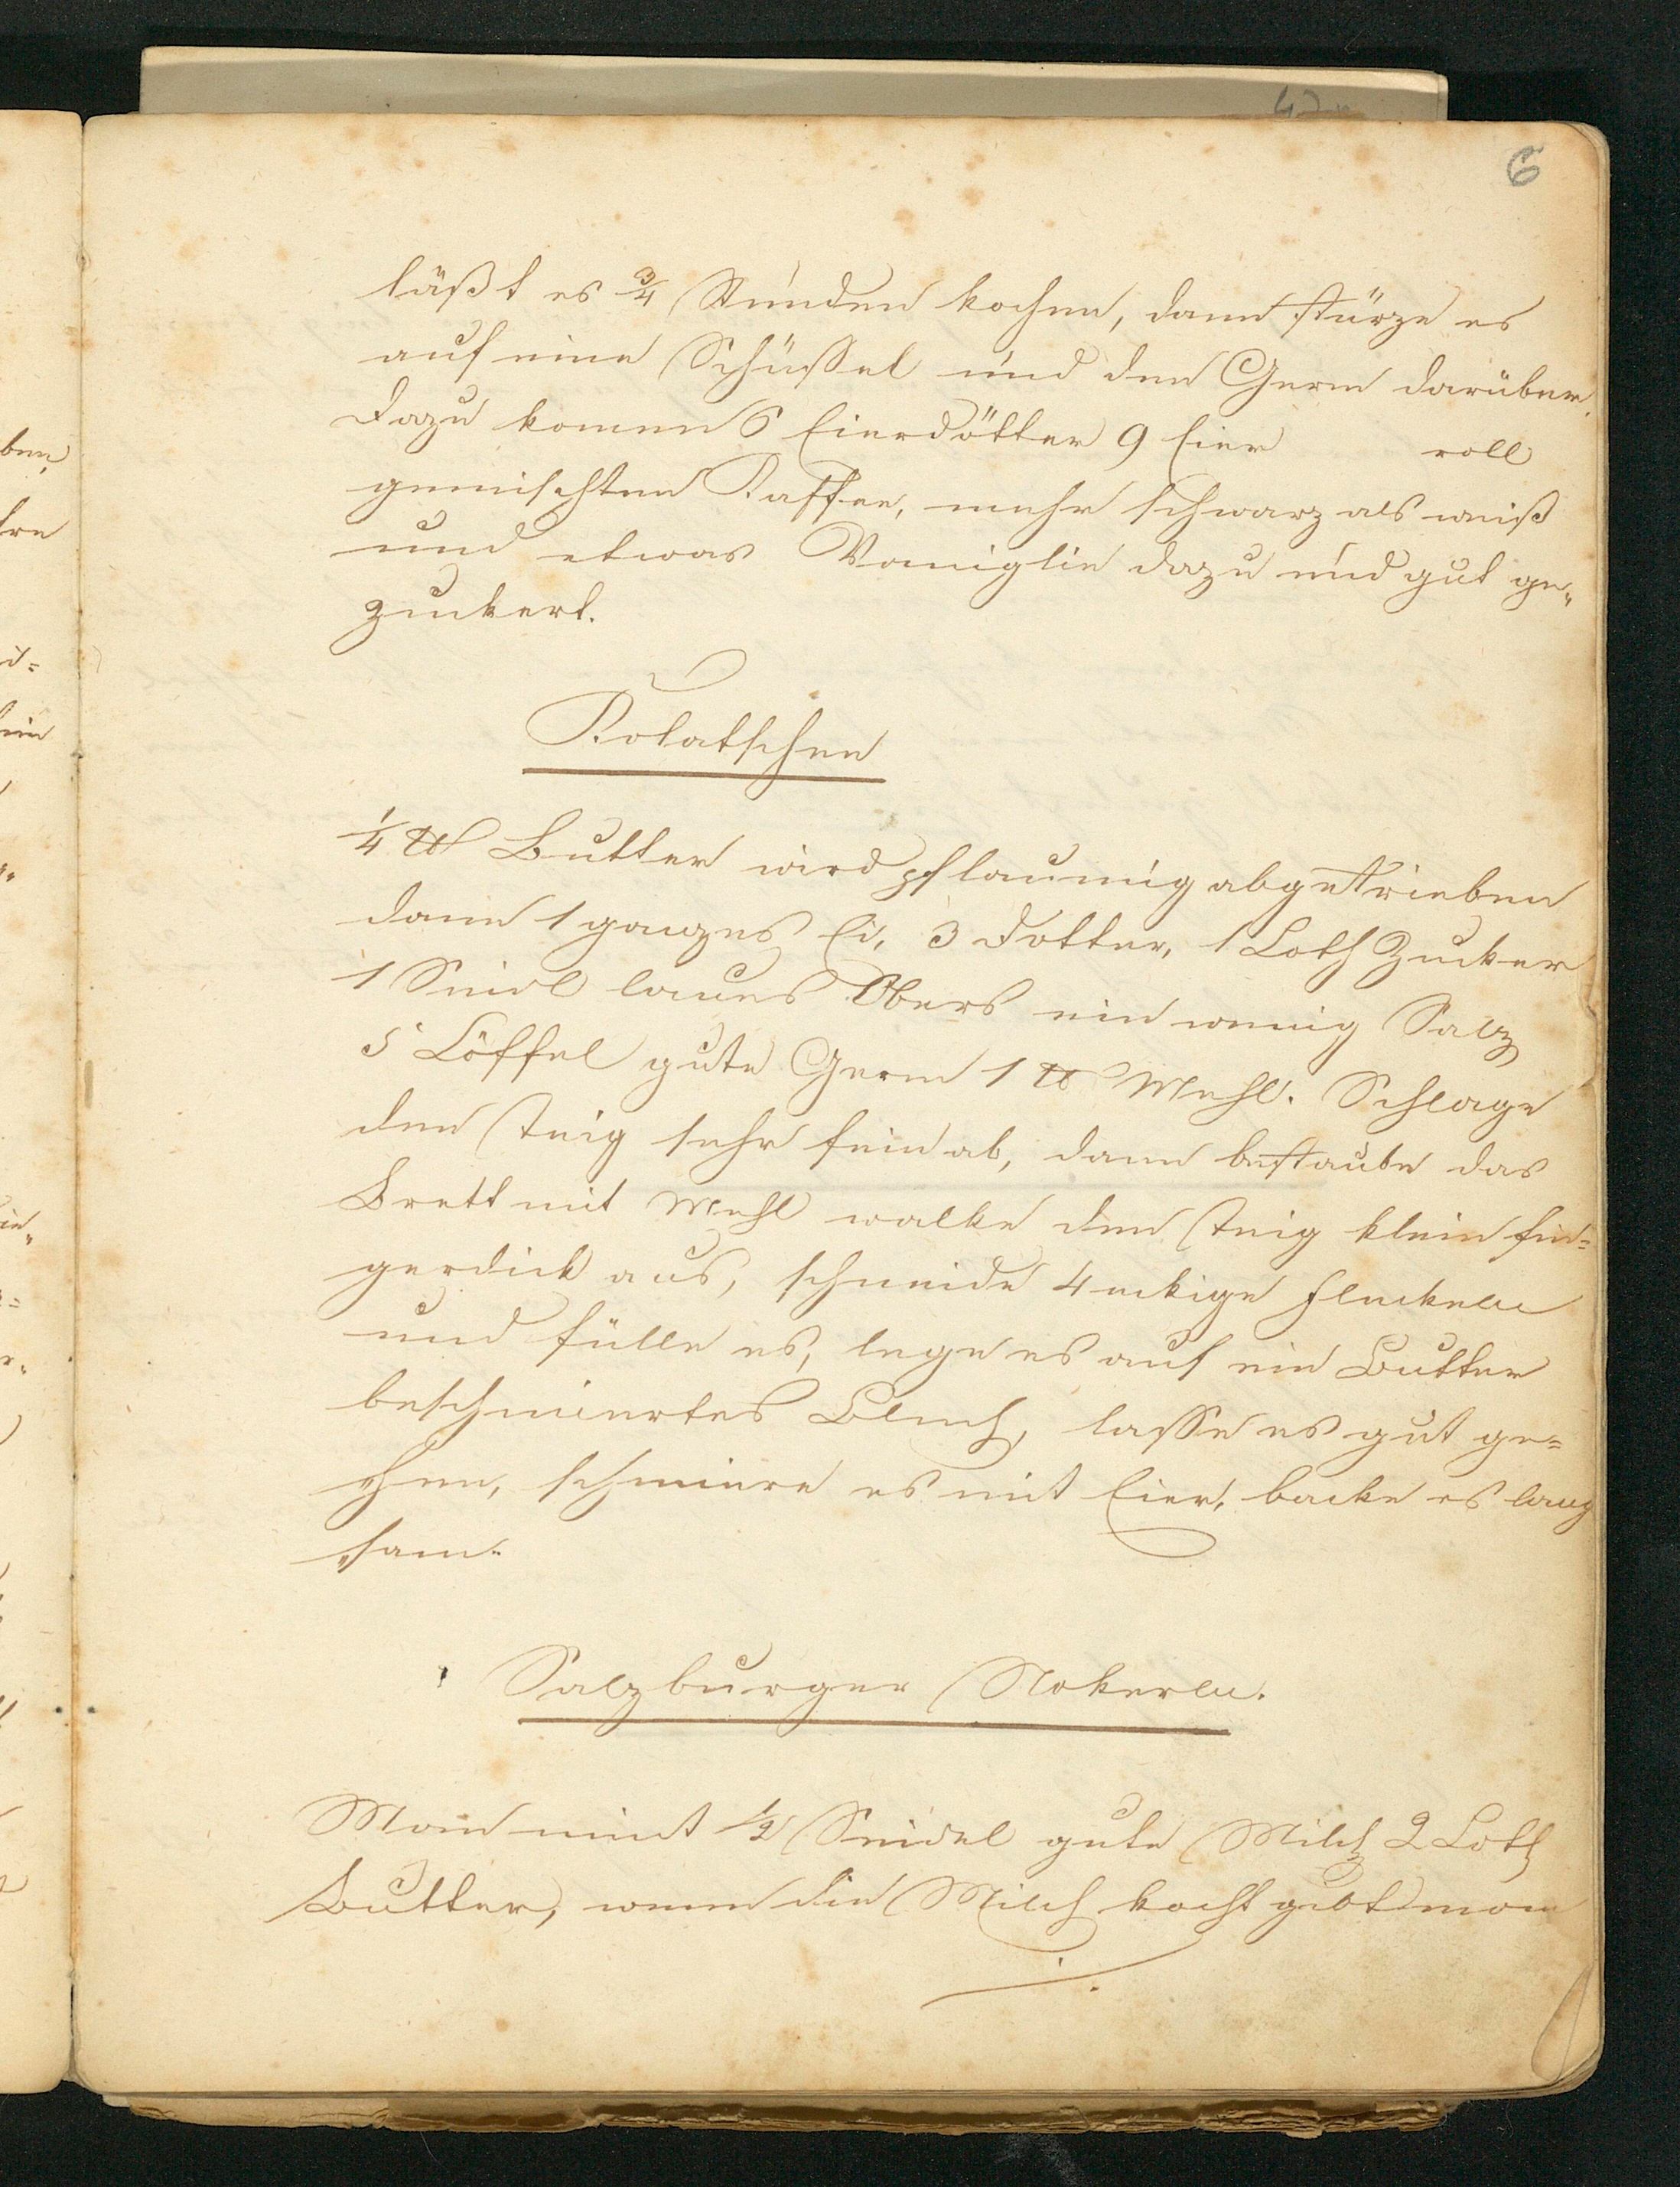 6
läßt es 3/4 Stunden kochen, dann stürze es
auf eine Schüssel und den Germ darüber.
Dazu komen 6 Eierdötter 9 Eier voll
gemischten Kaffee, mehr schwarz als weiß
und etwas Vaniglie dazu und gut ge„
zuckert.
Kolatschen
1/4 ℔ Butter wird pflaumig abgetrieben
dann 1 ganzes Ei, 3 Dotter, 1 Loth Zucker
1 Seidl laues Obers ein wenig Salz
5 Löffel gute Germ 1 ℔ Mehl. Schlage
den Teig sehr fein ab, dann bestaube das
Brett mit Mehl walke den Teig klein fin=
gerdick aus, schneide 4 eckige Fleckeln
und fülle es, lege es auf ein Butter
beschmiertes Blech, lasse es gut ge=
hen, schmiere es mit Eier, backe es lang
„sam.
Salzburger Nokerln.
Man nimt 1/2 Seidel gute Milch 2 Loth
Butter, wenn die Milch kocht gibt man
./.